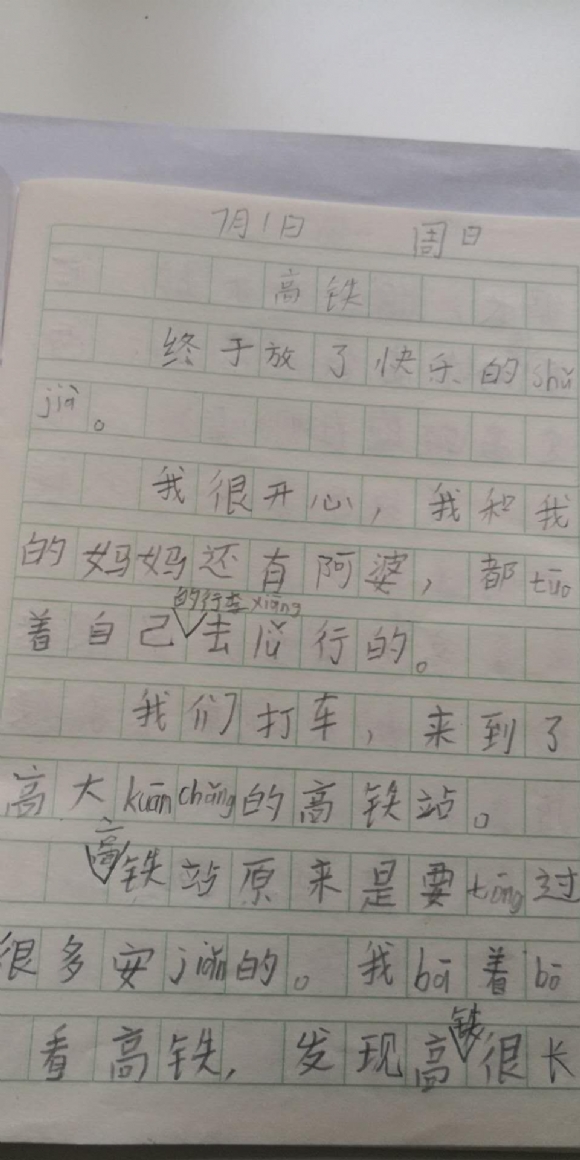 7月1日 周日
高铁
终于放了快乐的shǔ
jià。
我很开心，我和我
的妈妈还有阿婆，都tuō
着自己的行李xiāng去lǚ行的。
我们打车，来到了
高大kuān chǎng的高铁站。
高铁站原来是要tōng过
很多安jiǎn的。我bāi着bō
看高铁，发现高铁很长